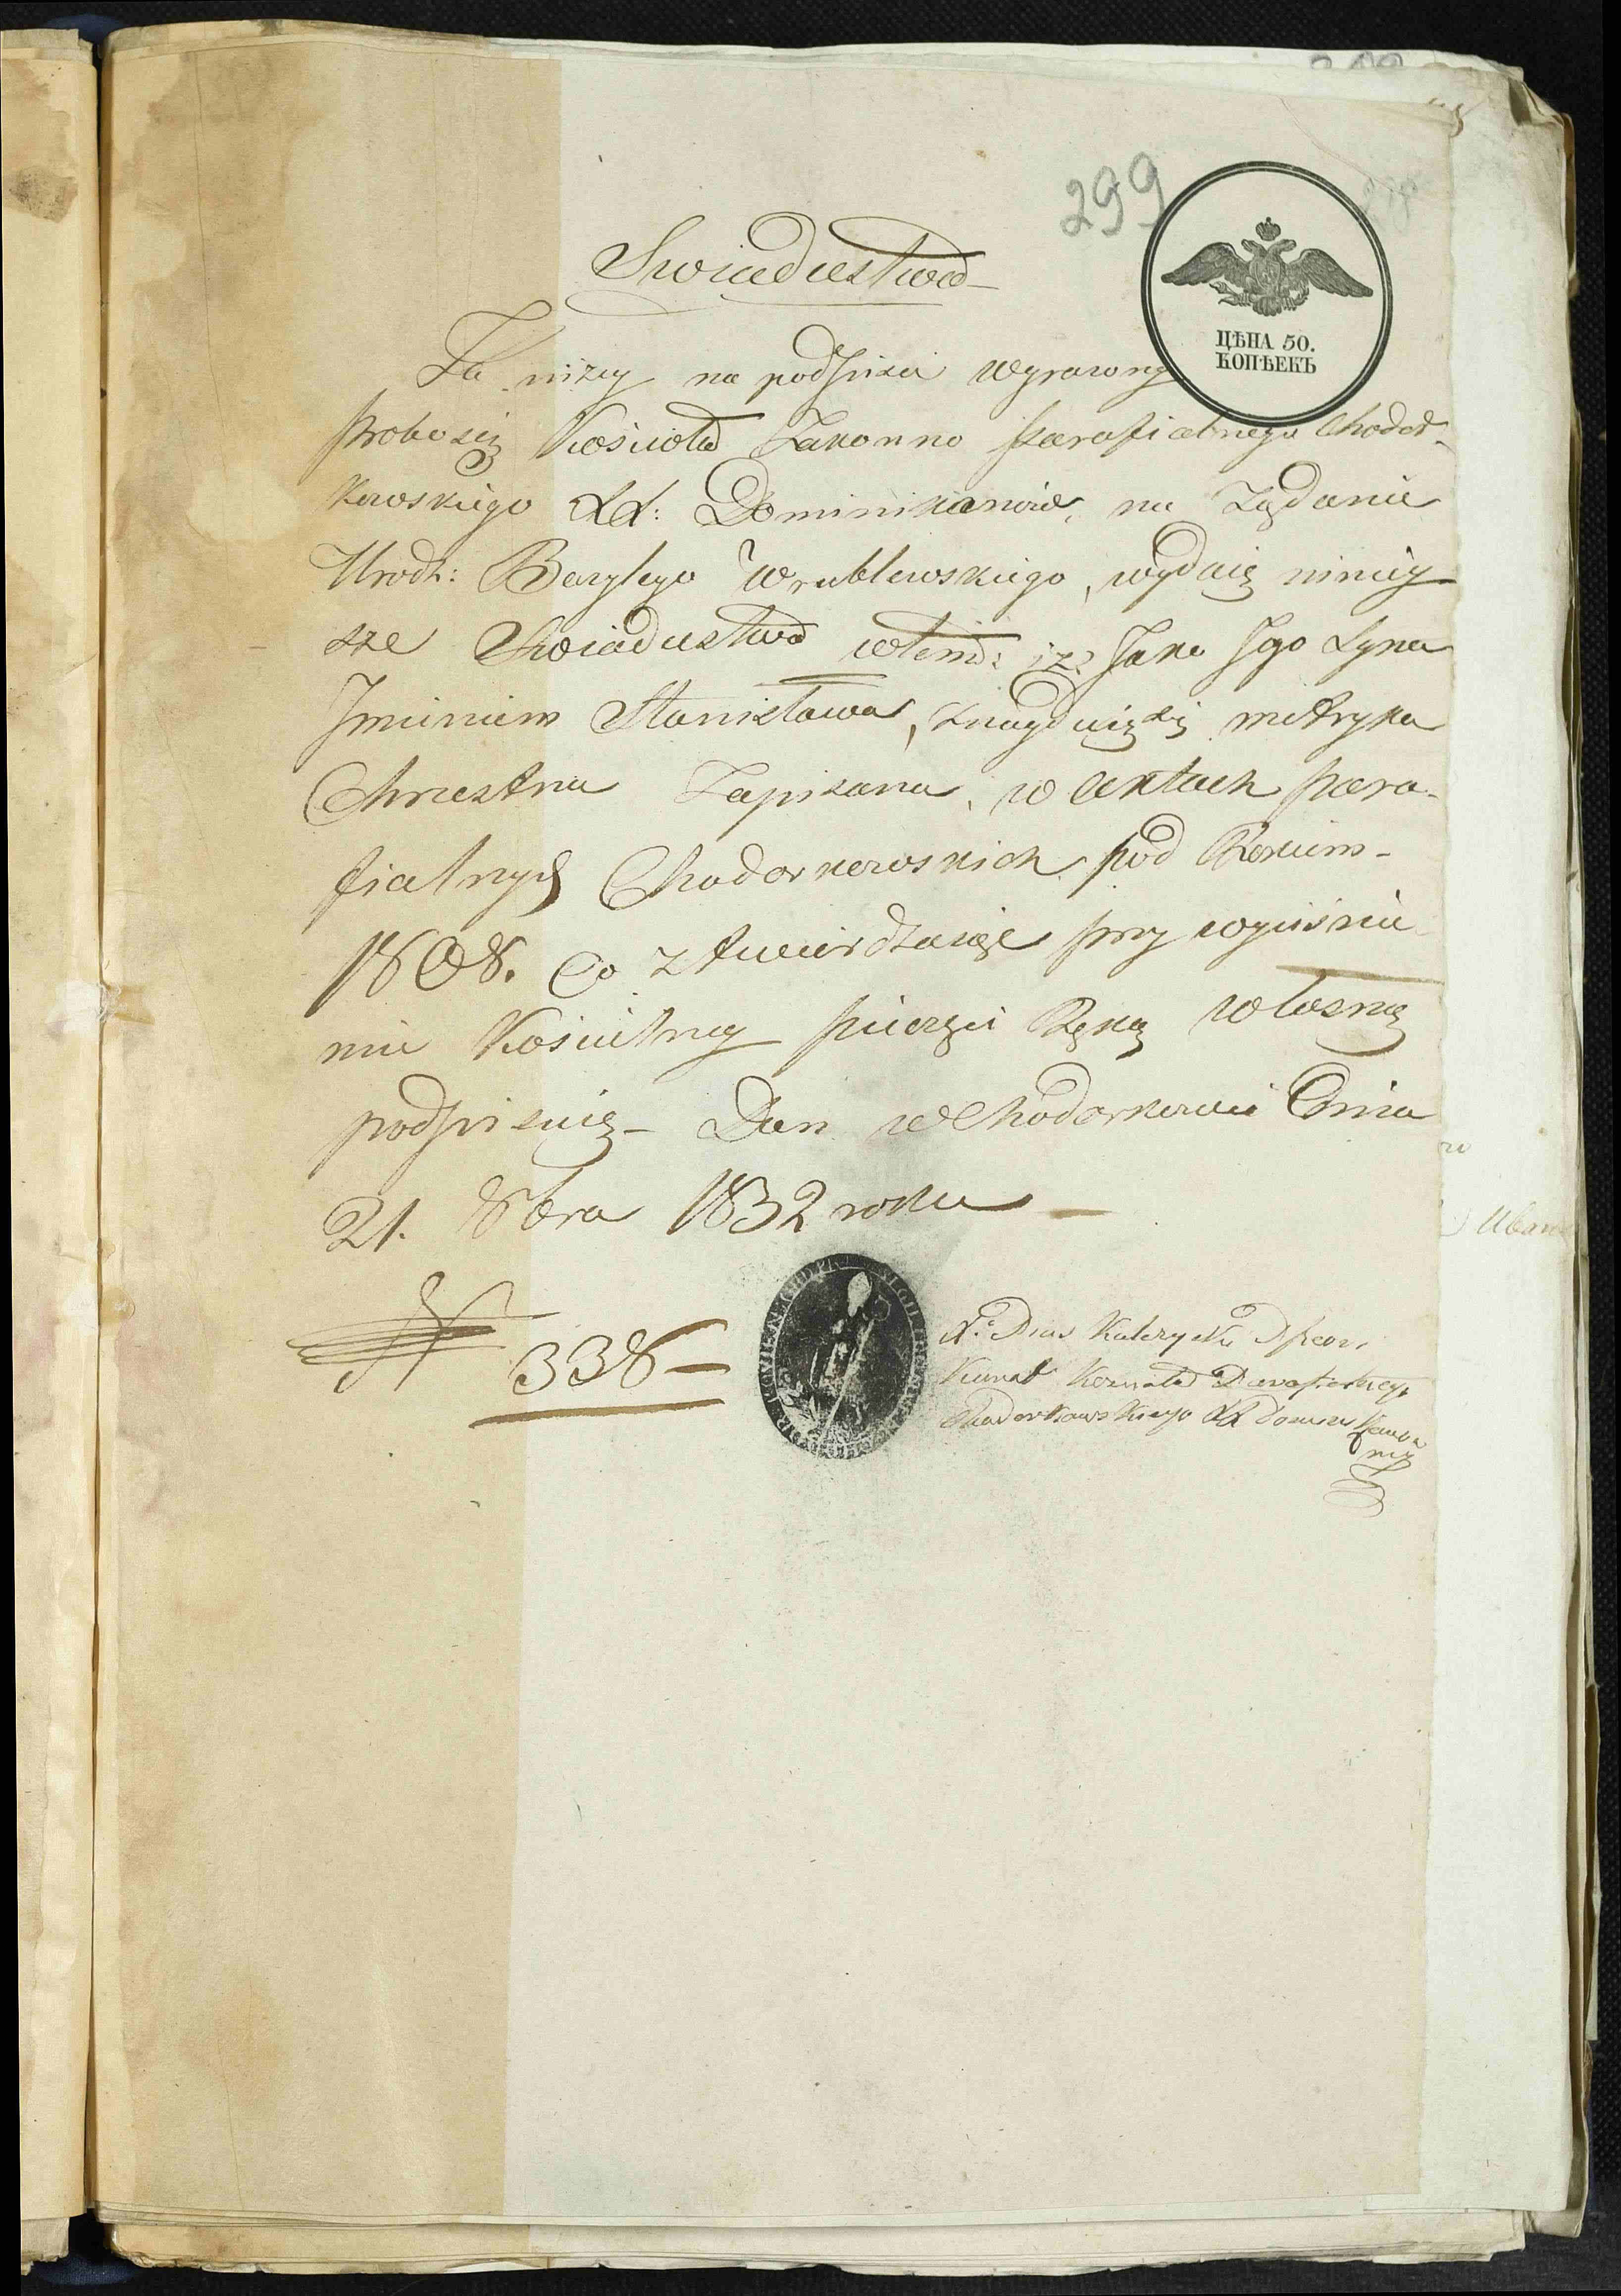 299
Swiadectwo
ЦѢНА 50.
КОПѢЕКЪ
Ja niżey na podpisie wyrażony
Proboszcz Kościoła Zakonno Parafialnego Chodor-
kowskiego XX: Dominikanów, na Żądanie
Urodz: Bazylego Wrublewskiego, wydaię niniey-
sze Swiadectwo wtem: iż Jako Jego Syna
Jmieniem Stanisława, znayduięsię metryka
Chrzestna Zapisana, w Aktach Para-
fialnych Chodorkowskich pod Rokiem
1808. Co ztwierdzaiąc przy wyciśnie
niu Kościelney pieczęci Ręką własną
podpisuię - Dan w Chodorkowie Dnia
21. 8bra 1832 roku
N 338
X. Pius
Kościoła Parafialnego
Chodorkowskiego XX Dominikanow
mp